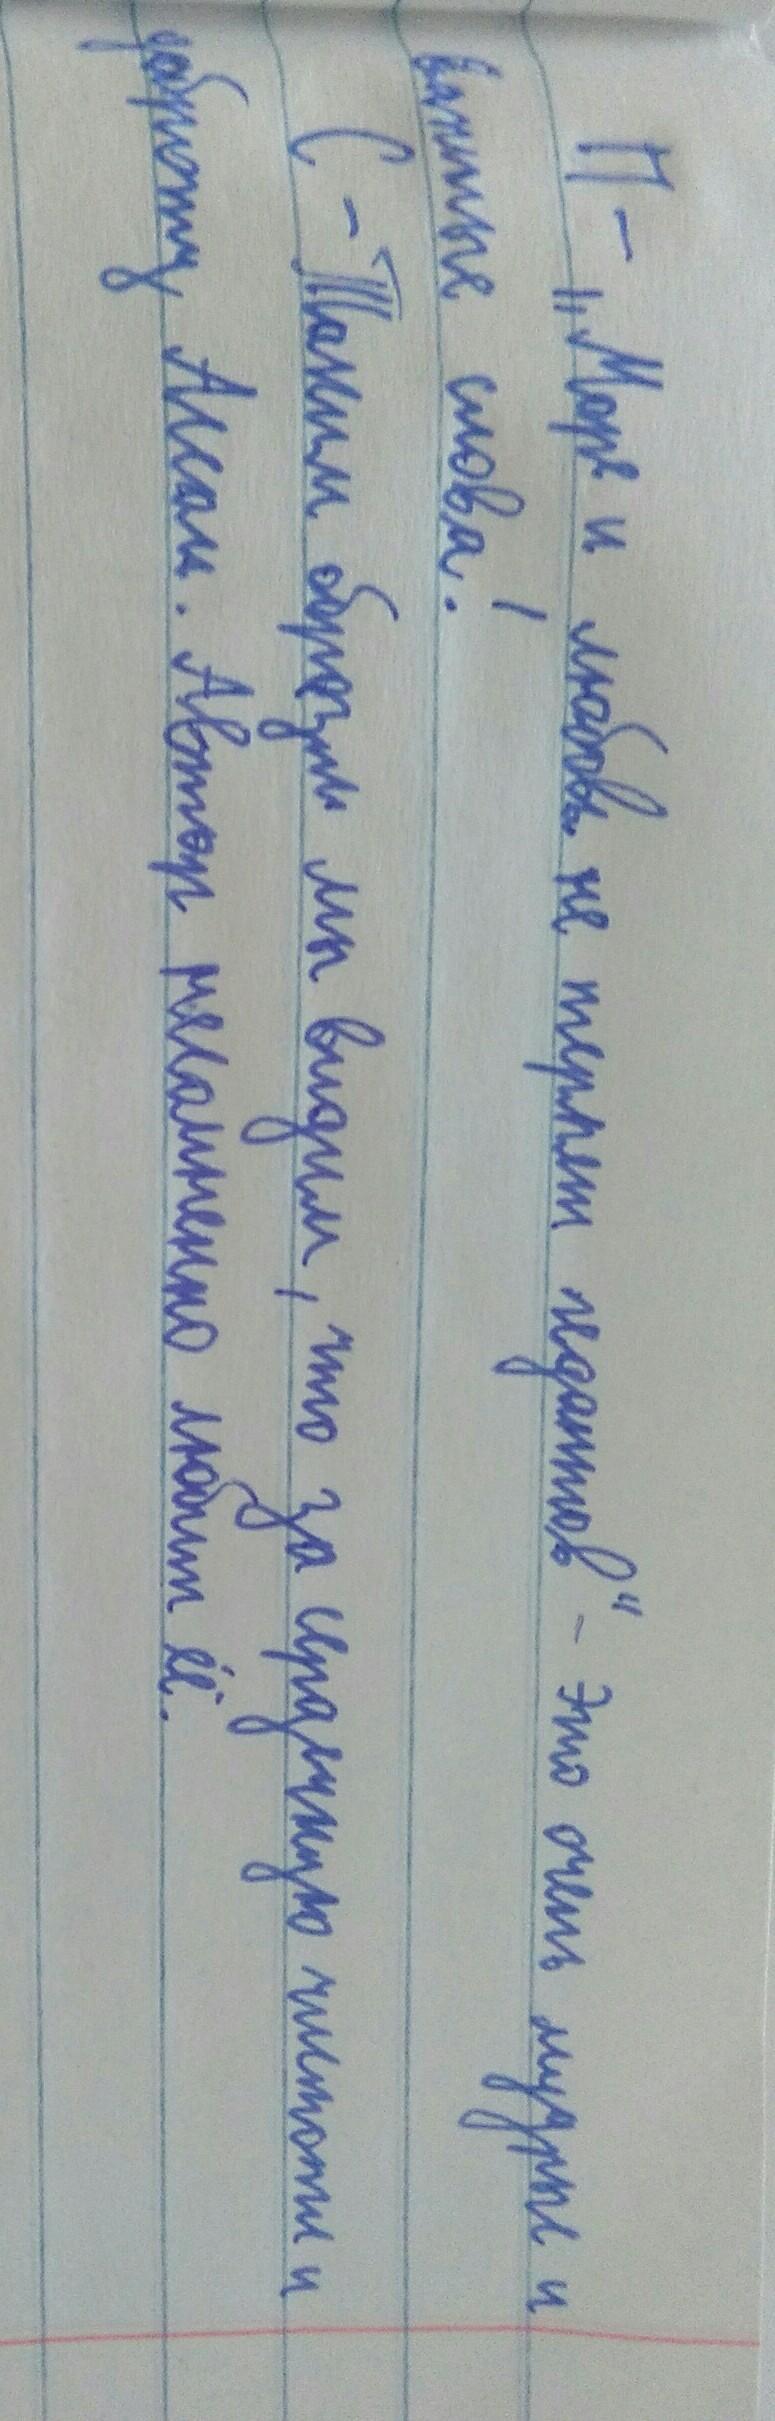 П – „Море и любовь не терпят педантов“ – это очень мудрые и
важные слова!
С – Таким образом мы видим, что за сердечную чистоту и
доброту Ассоль. Автор несомненно любит её.